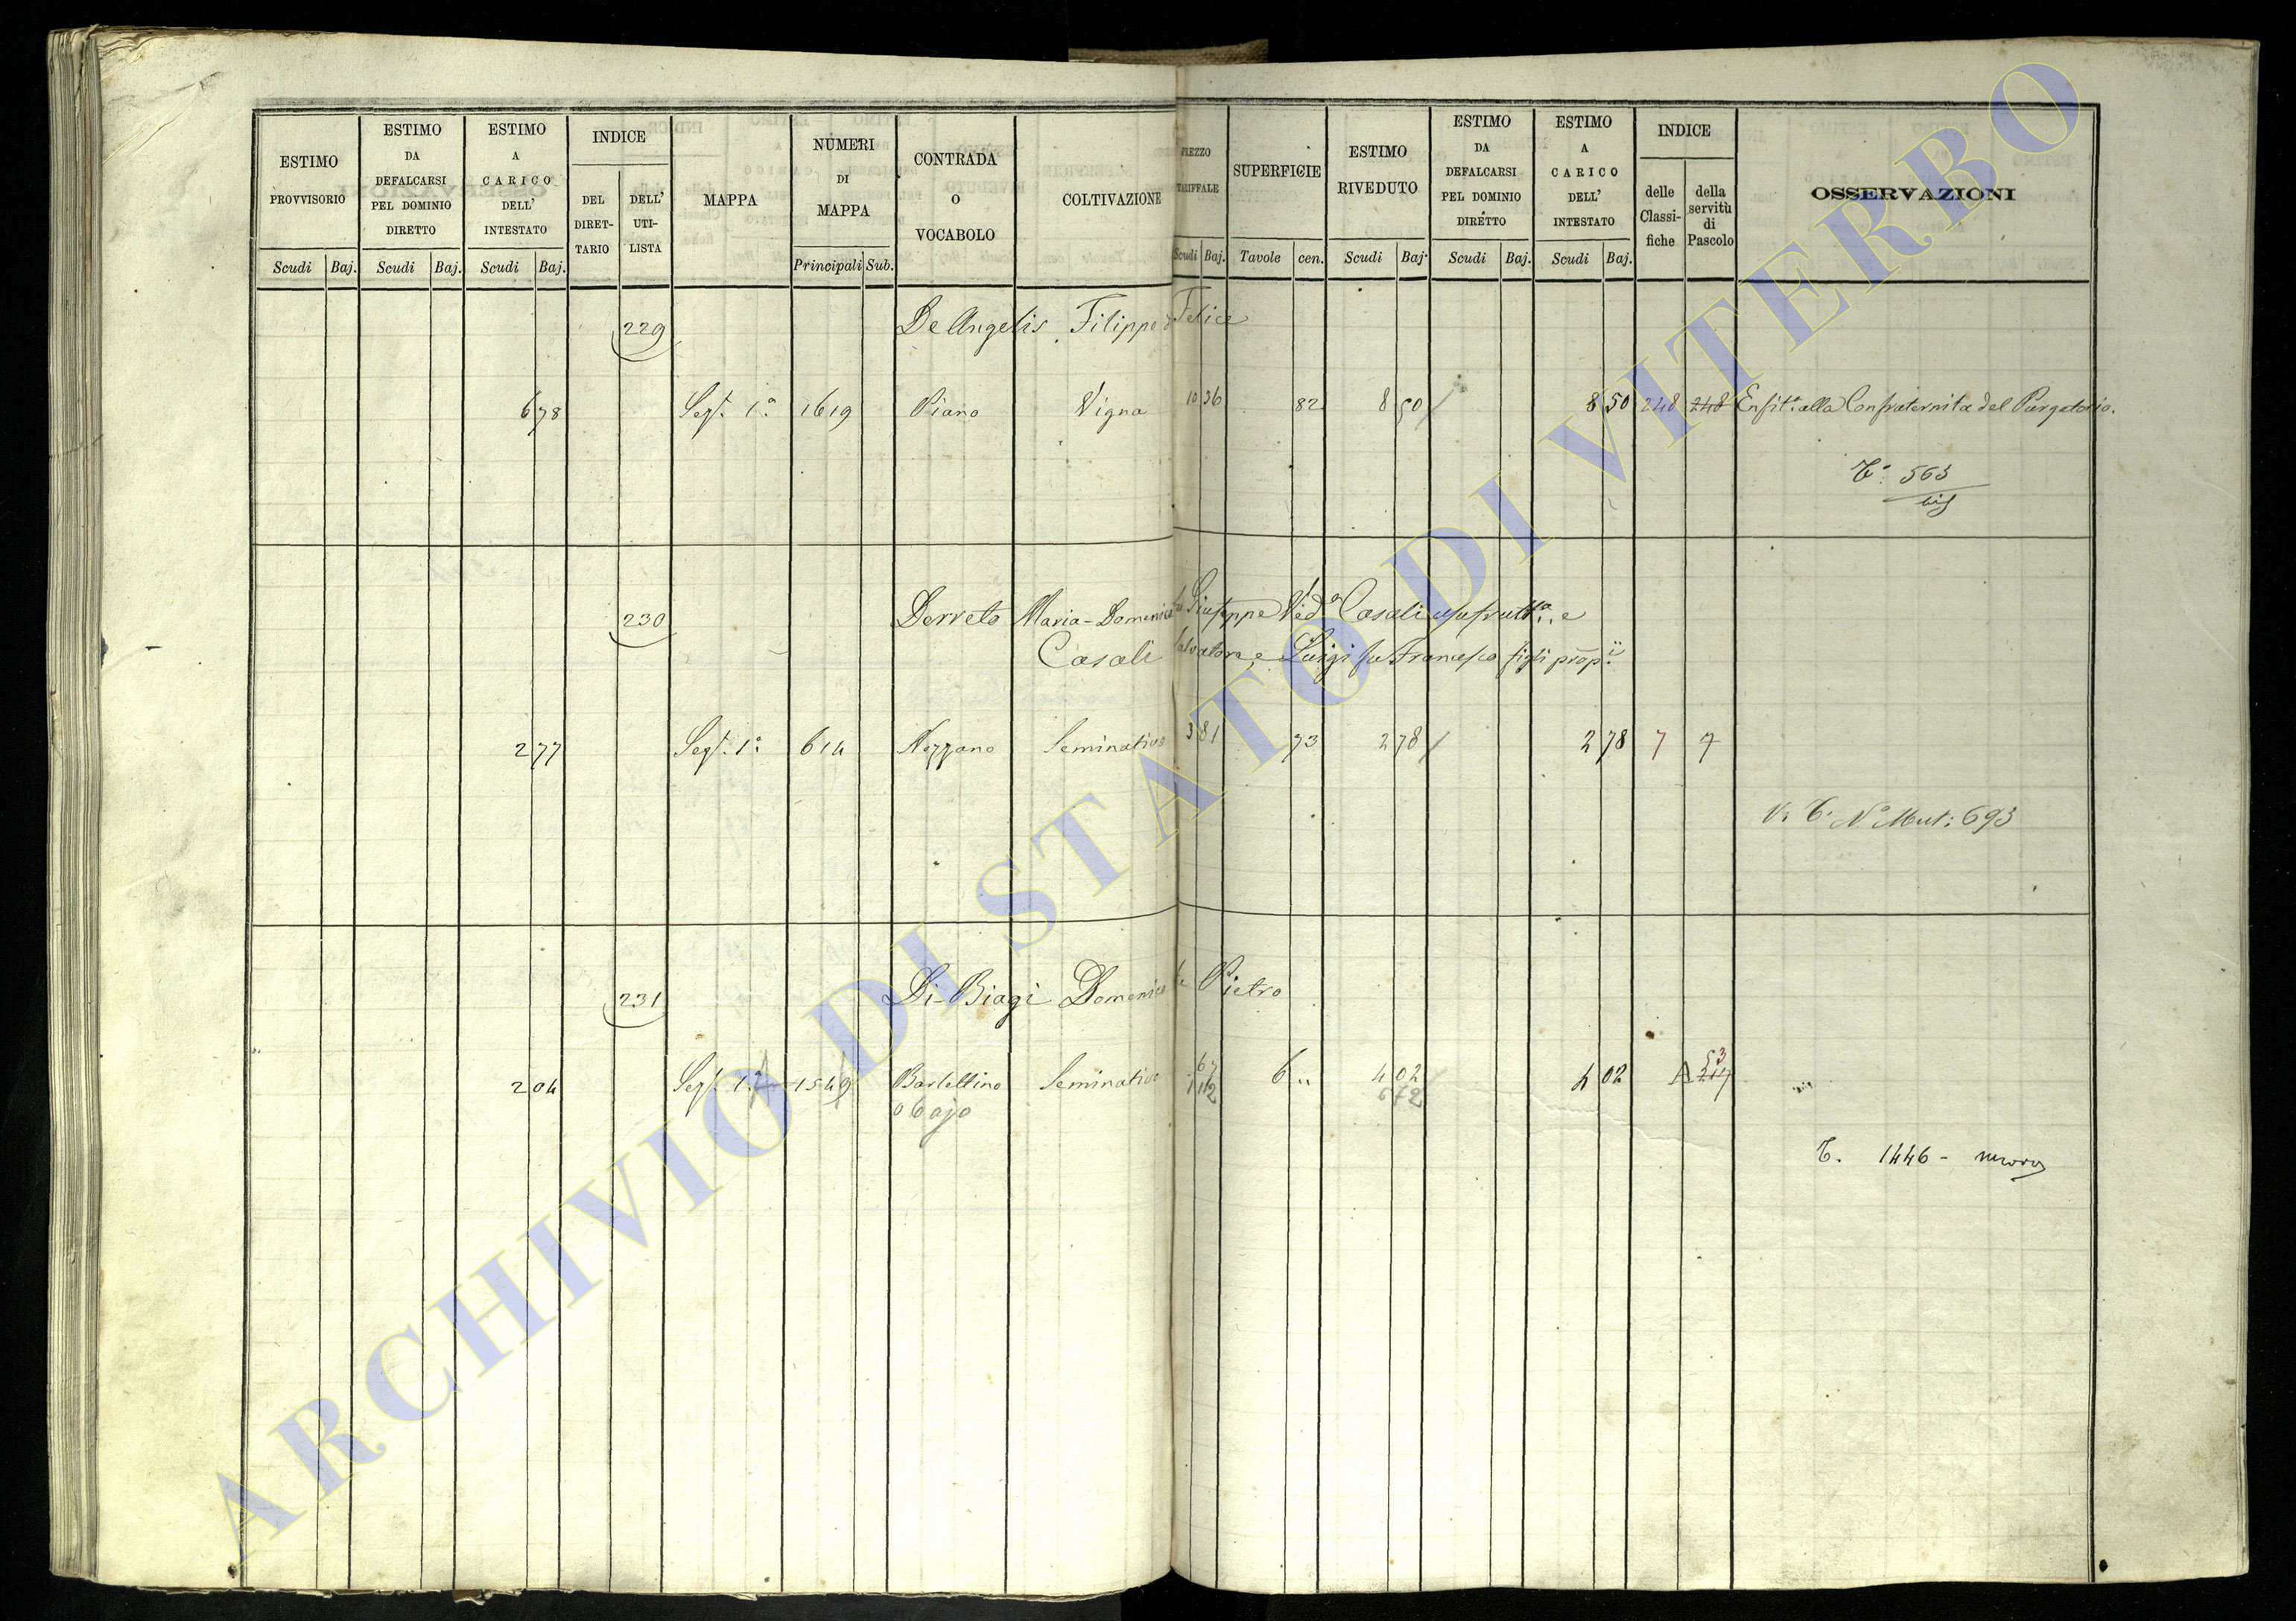 ESTIMO PROVVISORIO Scudi Baj.
ESTIMO DA DEFALCARSI PEL DOMINIO DIRETTO Scudi Baj.
ESTIMO A CARICO DELL' INTESTATO Scudi Baj.
INDICE DEL DIRET-TARIO DELL' UTI-LISTA
MAPPA
NUMERI DI MAPPA Principali Sub.
CONTRADA O VOCABOLO
COLTIVAZIONE
PREZZO TARIFFALE Scudi Baj.
SUPERFICIE Tavole cen.
ESTIMO RIVEDUTO Scudi Baj.
ESTIMO DA DEFALCARSI PEL DOMINIO DIRETTO Scudi Baj.
ESTIMO A CARICO DELL' INTESTATO Scudi Baj.
INDICE delle Classi-fiche della servitù di Pascolo
OSSERVAZIONI
229 De Angelis Filippo Felice
6 78 Sez. 1a 1619 Piano Vigna 10 36 82 8 50 8 50 248 248 Enfit. alla Confraternita del Purgatorio.
T. 563
bis
230 Derreto Maria-Domenica fu Giuseppe Ved.a Casali usufrutt.a e
Casali Salvatore, e Luigi fu Francesco figli prop.ii
2 77 Sez. 1a 614 Nozzano Seminativo 3 81 73 2 78 2 78 7 7
V. T. N.o Mut: 693
231 Di-Biagi Domenico fu Pietro
2 04 Sez. 1a 1549 Bartellino Seminativo 67 6 " 4 02 4 02 53
1 12 6 72
T. 1446 - nuovo
ARCHIVIO DI STATO DI VITERBO